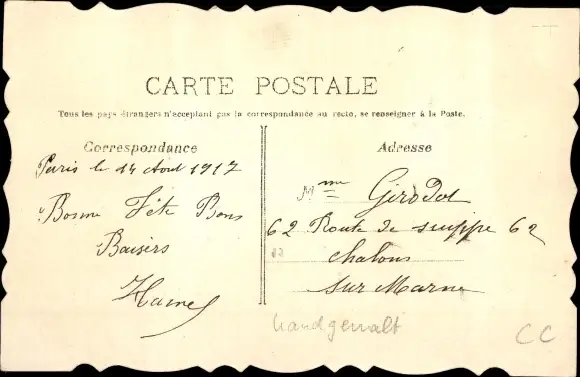 CARTE POSTALE
Tous les pays étrangers n'acceptant pas la correspondance au recto, se renseigner à la Poste.
Correspondance
Paris le 14 Aout 1917
Bonne Fête Bons
Baisers
Adresse
Mme Girodot
62 Route de suippe 62
chalons
sur Marne
handgemalt
CC